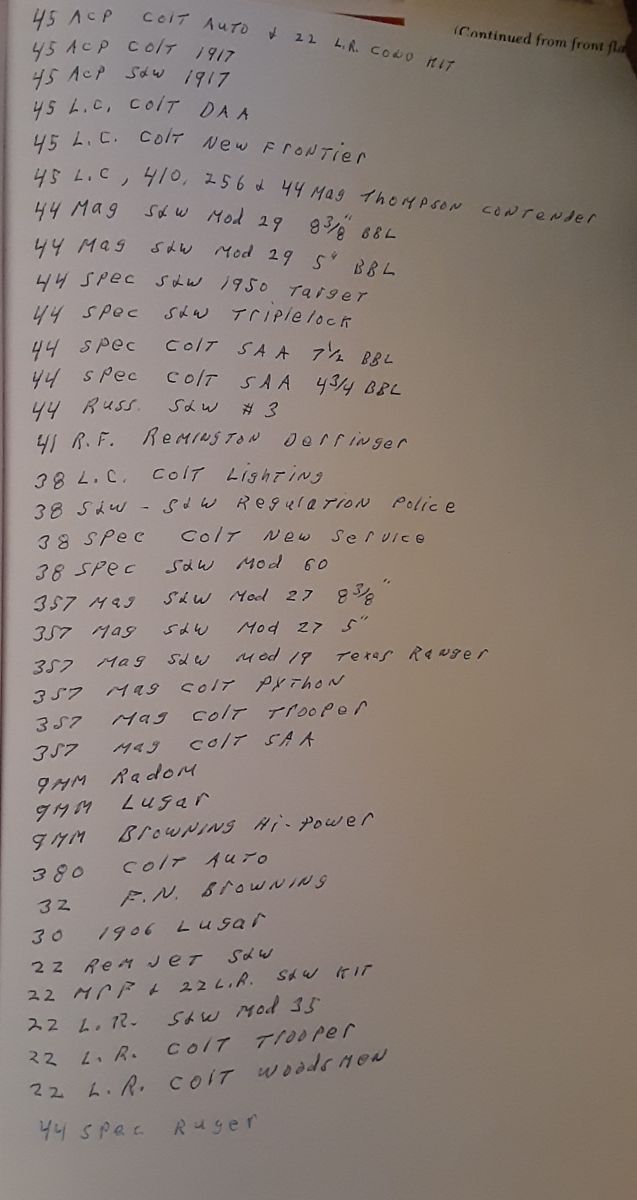 (Continued from front fla
45 ACP COLT AUTO & 22 L.R. CONV KIT
45 ACP COLT 1917
45 ACP S&W 1917
45 L.C. COLT DAA
45 L.C. COLT New FronTier
45 L.C, 410, 256 & 44 Mag THOMPSON CONTENDER
44 Mag S&W Mod 29 8 3/8" BBL
44 Mag S&W Mod 29 5" BBL
44 SPec S&W 1950 TarGeT
44 SPec S&W Triplelock
44 SPec COLT SAA 7 1/2 BBL
44 SPec COLT SAA 4 3/4 BBL
44 Russ. S&W # 3
41 R.F. REMINGTON Derringer
38 L.C. COLT Lighting
38 S&W - S&W Regulation Police
38 SPec COLT New Service
38 SPec S&W Mod 60
357 Mag S&W Mod 27 8 3/8"
357 Mag S&W Mod 27 5"
357 Mag S&W Mod 19 Texas Ranger
357 Mag COLT PYTHON
357 Mag COLT Trooper
357 Mag COLT SAA
9MM Radom
9MM Lugar
9MM Browning Hi-Power
380 COLT AUTO
32 F.N. Browning
30 1906 Lugar
22 Rem JeT S&W
22 MRF & 22 L.R. S&W KIT
22 L.R. S&W Mod 35
22 L.R. COLT Trooper
22 L.R. COLT Woodsmen
44 SPec Ruger